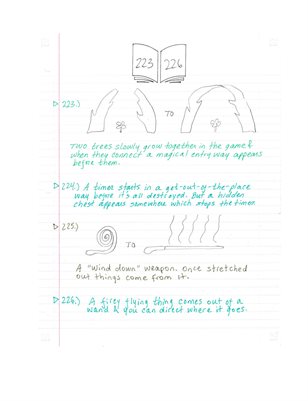 223 226
223.)
TO
Two trees slowly grow together in the game &
when they connect a magical entry way appears
before them.
224.) A times starts in a get-out-of-the-place
way before it's all destroyed. But a hidden
chest appears somewhere which stops the times.
225.)
TO
A "wind down" weapon. Once stretched
out things come from it.
226.) A firey flying thing comes out of a
wand & you can direct where it goes.